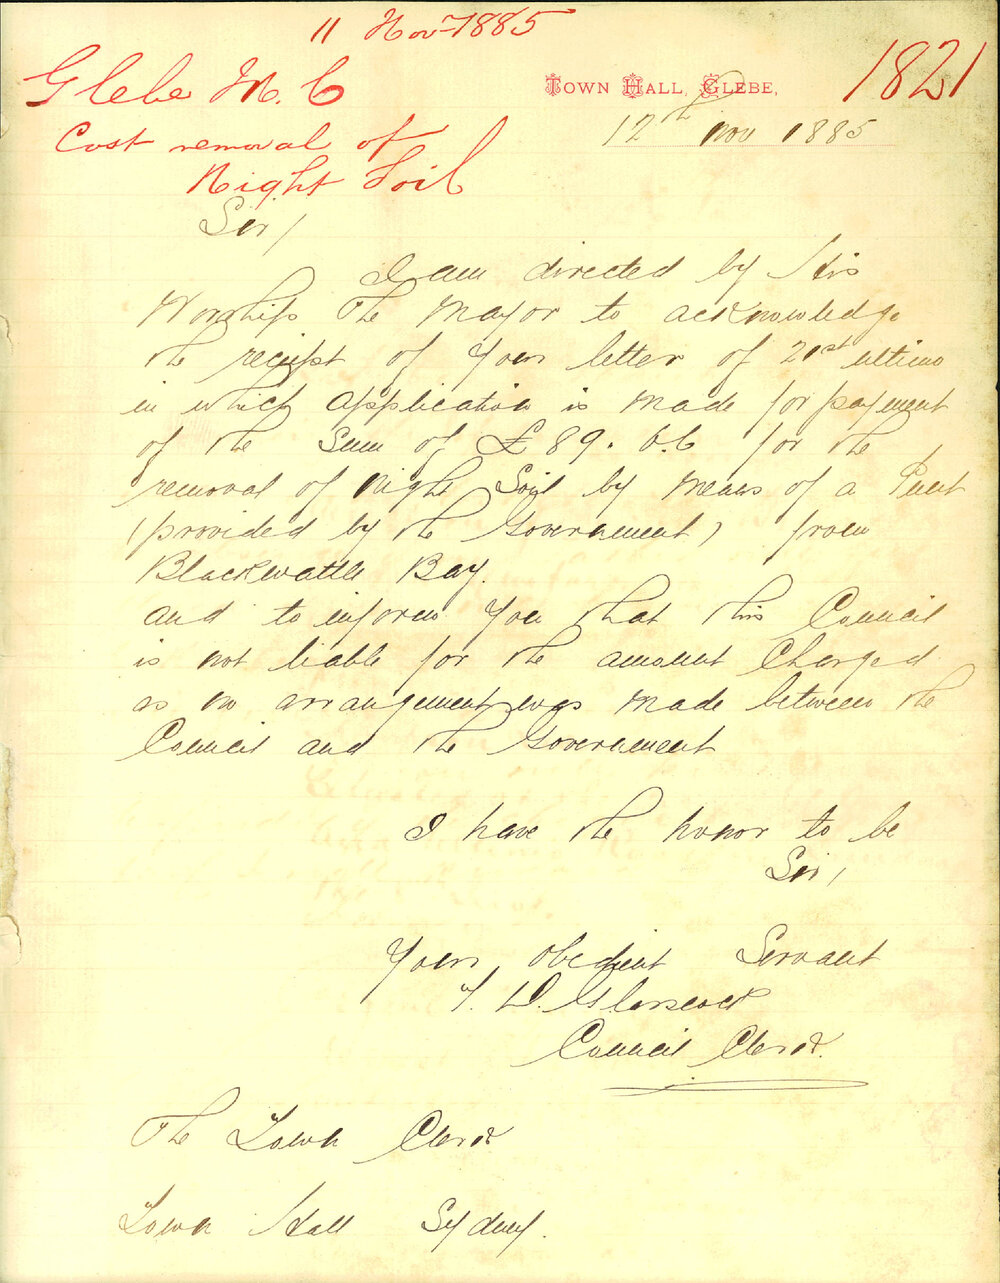 11 Nov 1885
Glebe M. C
1821
Cost removal of
Night Soil
TOWN HALL, GLEBE,
12th nov 1885
Sir /
I am directed by His
Worship the Mayor to acknowledge
the receipt of your letter of 21st ultimo
in which application is made for payment
of the Sum of £89. 6.6 for the
removal of Night Soil by means of a Punt
(provided by the Government) from
Blackwattle Bay.
and to inform you that this Council
is not liable for the amount Charged
as no arrangement was made between the
Council and the Government
I have the honor to be
Sir,
Your obedient Servant
T. D. Glasscock
Council Clerk.
The Town Clerk
Town Hall Sydney.